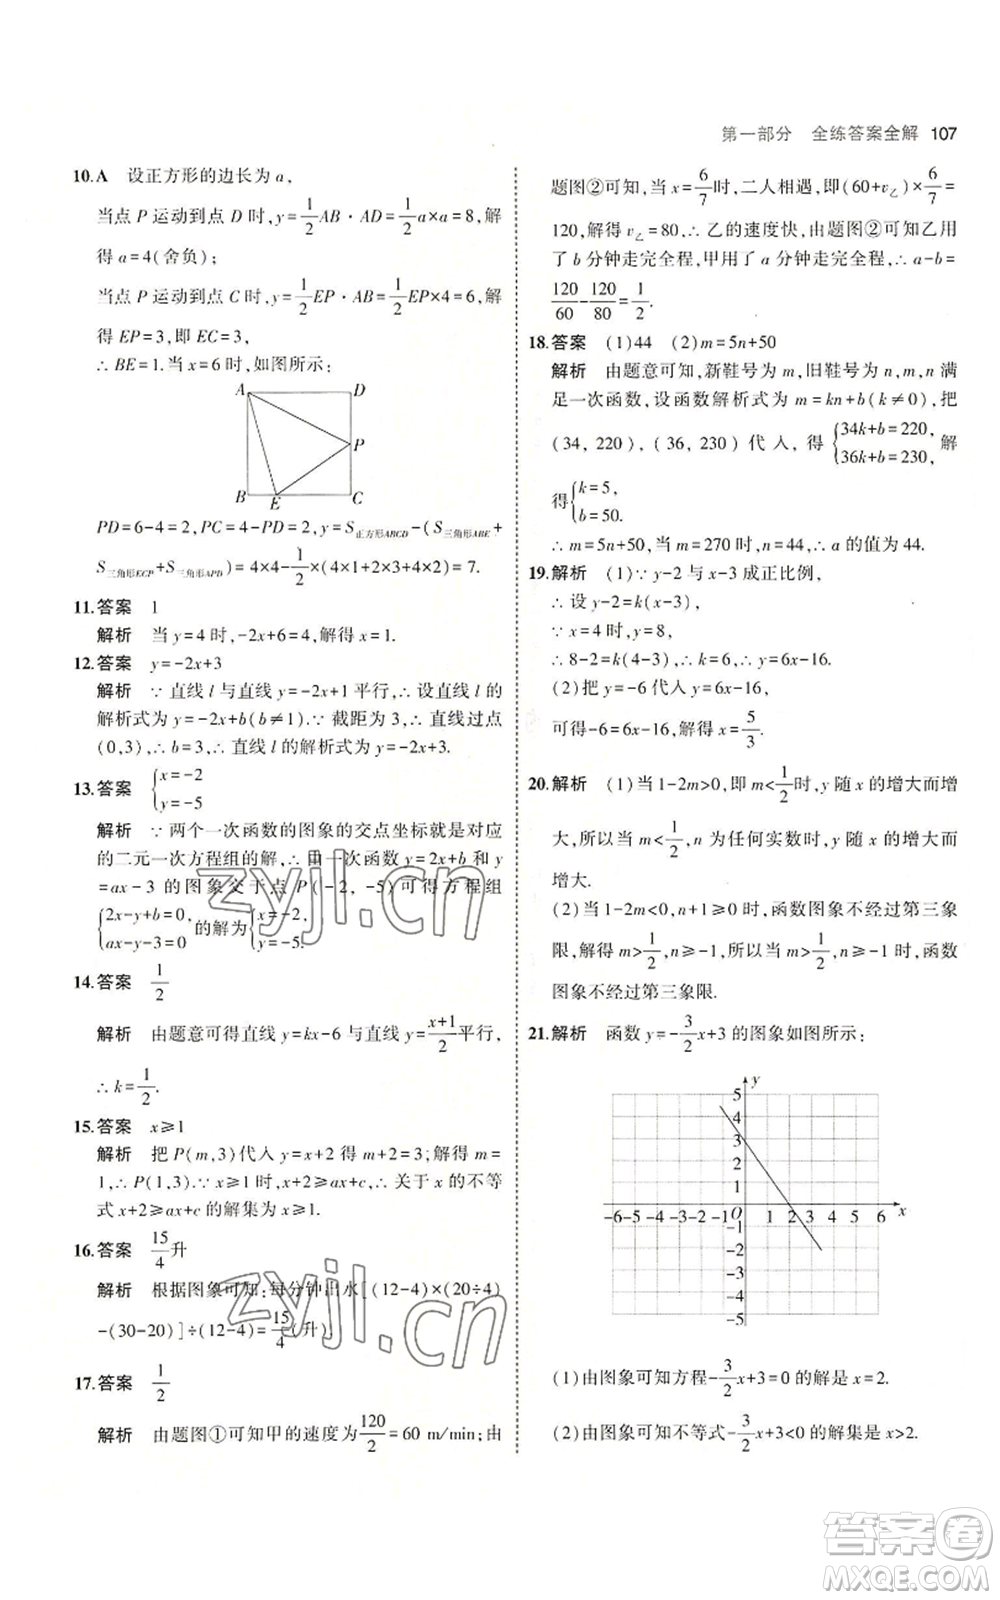 第一部分 全练答案全解 107
10.A 设正方形的边长为 a，
当点 P 运动到点 D 时，y=1/2 AB·AD=1/2 a×a=8，解
得 a=4(舍负)；
当点 P 运动到点 C 时，y=1/2 EP·AB=1/2 EP×4=6，解
得 EP=3，即 EC=3，
∴ BE=1.当 x=6 时，如图所示：
A D
P
B E C
PD=6-4=2，PC=4-PD=2，y=S正方形ABCD-(S三角形ABE+
S三角形ECP+S三角形APD)=4×4-1/2×(4×1+2×3+4×2)=7.
11.答案 1
解析 当 y=4 时，-2x+6=4，解得 x=1.
12.答案 y=-2x+3
解析 ∵ 直线 l 与直线 y=-2x+1 平行，∴ 设直线 l 的
解析式为 y=-2x+b(b≠1).∵ 截距为 3，∴ 直线过点
(0,3)，∴ b=3，∴ 直线 l 的解析式为 y=-2x+3.
13.答案 {x=-2
y=-5
解析 ∵ 两个一次函数的图象的交点坐标就是对应
的二元一次方程组的解，∴ 由一次函数 y=2x+b 和 y
=ax-3 的图象交于点 P(-2，-5)可得方程组
{2x-y+b=0,
ax-y-3=0 的解为{x=-2,
y=-5.
14.答案 1/2
解析 由题意可得直线 y=kx-6 与直线 y=(x+1)/2 平行，
∴ k=1/2.
15.答案 x≥1
解析 把 P(m,3)代入 y=x+2 得 m+2=3；解得 m=
1，∴ P(1,3).∵ x≥1 时，x+2≥ax+c，∴ 关于 x 的不等
式 x+2≥ax+c 的解集为 x≥1.
16.答案 15/4升
解析 根据图象可知：每分钟出水[(12-4)×(20÷4)
-(30-20)]÷(12-4)=15/4(升).
17.答案 1/2
解析 由题图①可知甲的速度为120/2=60 m/min；由
题图②可知，当 x=6/7时，二人相遇，即(60+v乙)×6/7=
120，解得 v乙=80，∴ 乙的速度快，由题图②可知乙用
了 b 分钟走完全程，甲用了 a 分钟走完全程，∴ a-b=
120/60-120/80=1/2.
18.答案 (1)44 (2)m=5n+50
解析 由题意可知，新鞋号为 m，旧鞋号为 n，m，n 满
足一次函数，设函数解析式为 m=kn+b(k≠0)，把
(34，220)，(36，230)代入，得{34k+b=220,
36k+b=230,解
得{k=5,
b=50.
∴ m=5n+50，当 m=270 时，n=44，∴ a 的值为 44.
19.解析 (1)∵ y-2 与 x-3 成正比例，
∴ 设 y-2=k(x-3)，
∵ x=4 时，y=8，
∴ 8-2=k(4-3)，∴ k=6，∴ y=6x-16.
(2)把 y=-6 代入 y=6x-16，
可得-6=6x-16，解得 x=5/3.
20.解析 (1)当 1-2m>0，即 m<1/2时，y 随 x 的增大而增
大，所以当 m<1/2，n 为任何实数时，y 随 x 的增大而
增大.
(2)当 1-2m<0，n+1≥0 时，函数图象不经过第三象
限，解得 m>1/2，n≥-1，所以当 m>1/2，n≥-1 时，函数
图象不经过第三象限.
21.解析 函数 y=-3/2x+3 的图象如图所示：
y
5
4
3
2
1
-6-5-4-3-2-1 O 1 2 3 4 5 6 x
-1
-2
-3
-4
-5
(1)由图象可知方程-3/2x+3=0 的解是 x=2.
(2)由图象可知不等式-3/2x+3<0 的解集是 x>2.
zyjl.cn
zyjl.cn
答案圈
MXQE.COM